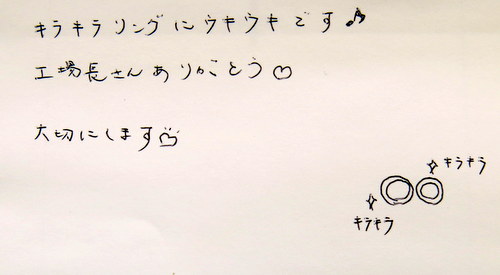 キラキラリングにウキウキです♪
工場長さんありがとう♡
大切にします
キラキラ
キラキラ